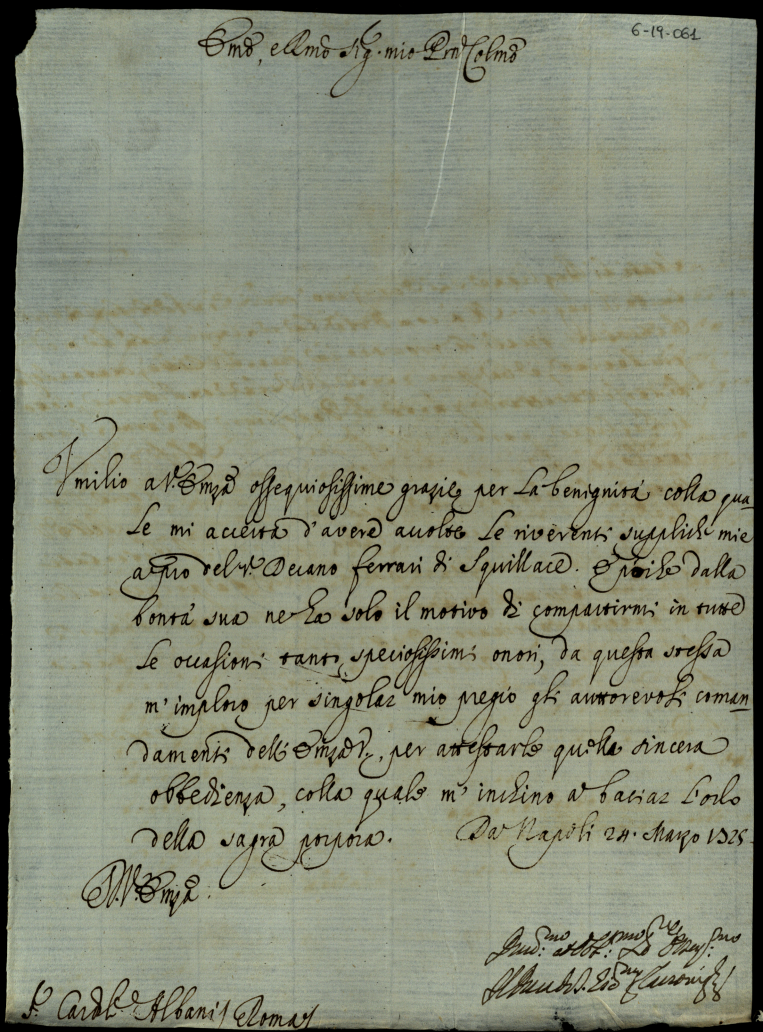 6-19-061
Emo, e Rmo Sig. mio Prn Colmo
Umilio a V. Emza ossequiosissime grazie per la benignità colla qua-
le mi accerta d'avere accolte le riverenti suppliche mie
a pro del Sr. Decano Ferrari di Squillace. E poiche dalla
bontà sua ne ha solo il motivo di compartirmi in tutte
le occasioni tanti speciosissimi onori, da questa stessa
m'imploro per singolar mio pregio gli auttorevoli coman-
damenti dell'Emza V., per attestarle quella sincera
obbedienza, colla quale m'inchino a baciar l'orlo
della sagra porpora. Da Napoli 24. Marzo 1725
D. V. Emza
Sr. Cardle Albani Roma